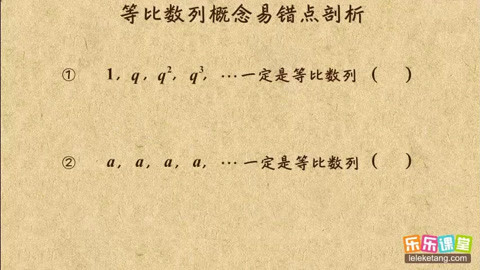 等比数列概念易错点剖析
① 1，q，q²，q³，…一定是等比数列（ ）
② a，a，a，a，…一定是等比数列（ ）
乐乐课堂
leleketang.com